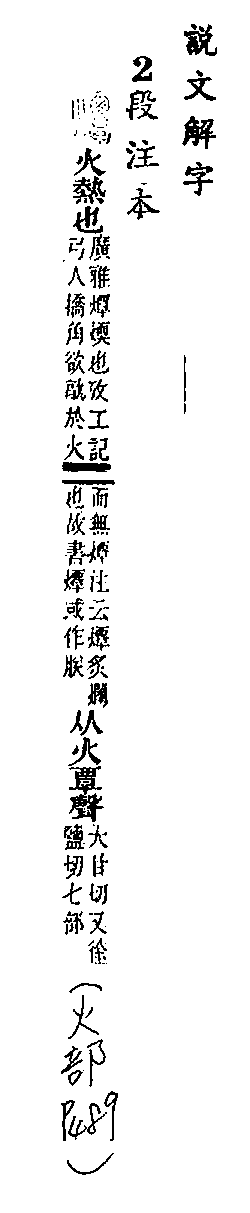 說文解字
2段注本
火熱也
廣雅燂煗也攷工記
弓人撟角欲孰於火
而無燂注云燂炙爛
也故書燂或作朕
从火覃聲
大甘切又徐
鹽切七部
(火部P489)